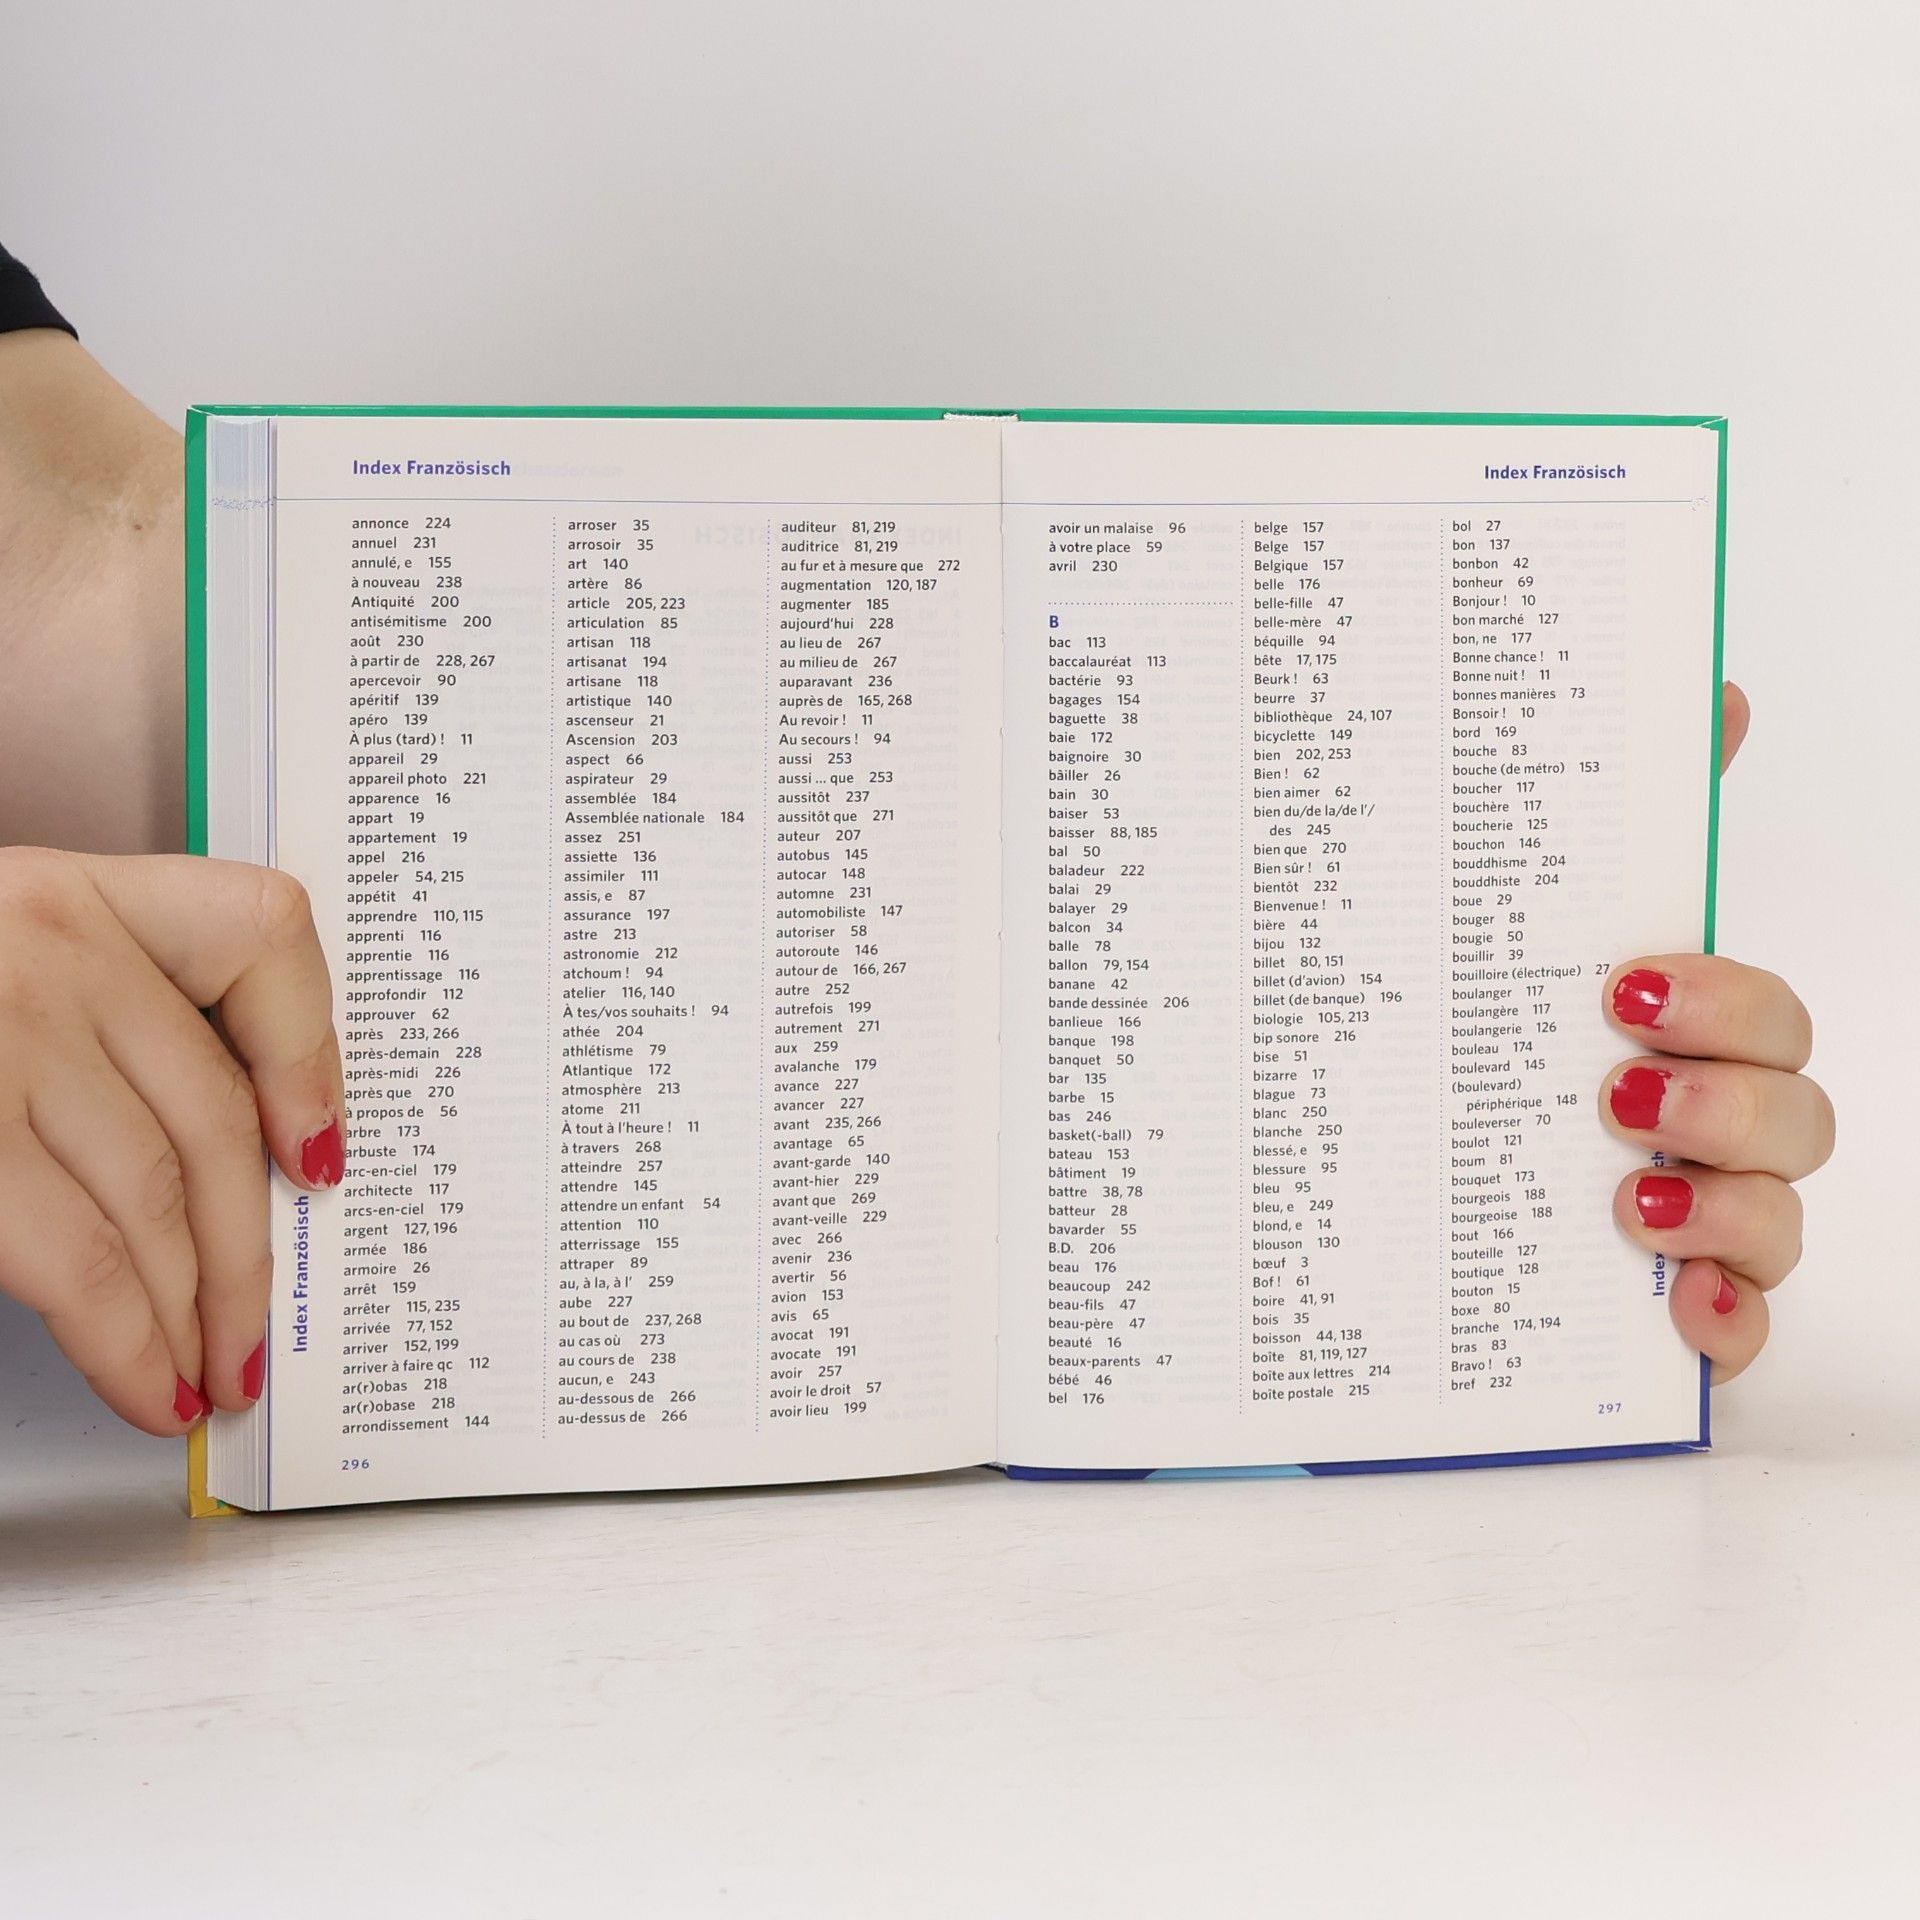 Index Französisch
annonce 224
annuel 231
annulé, e 155
à nouveau 238
Antiquité 200
antisémitisme 200
août 230
à partir de 228, 267
apercevoir 90
apéritif 139
apéro 139
À plus (tard) ! 11
appareil 29
appareil photo 221
apparence 16
appart 19
appartement 19
appel 216
appeler 54, 215
appétit 41
apprendre 110, 115
apprenti 116
apprentie 116
apprentissage 116
approfondir 112
approuver 62
après 233, 266
après-demain 228
après-midi 226
après que 270
à propos de 56
arbre 173
arbuste 174
arc-en-ciel 179
architecte 117
arcs-en-ciel 179
argent 127, 196
armée 186
armoire 26
arrêt 159
arrêter 115, 235
arrivée 77, 152
arriver 152, 199
arriver à faire qc 112
ar(r)obas 218
ar(r)obase 218
arrondissement 144
arroser 35
arrosoir 35
art 140
artère 86
article 205, 223
articulation 85
artisan 118
artisanat 194
artisane 118
artistique 140
ascenseur 21
Ascension 203
aspect 66
aspirateur 29
assemblée 184
Assemblée nationale 184
assez 251
assiette 136
assimiler 111
assis, e 87
assurance 197
astre 213
astronomie 212
atchoum ! 94
atelier 116, 140
À tes/vos souhaits ! 94
athée 204
athlétisme 79
Atlantique 172
atmosphère 213
atome 211
À tout à l'heure ! 11
à travers 268
atteindre 257
attendre 145
attendre un enfant 54
attention 110
atterrissage 155
attraper 89
au, à la, à l' 259
aube 227
au bout de 237, 268
au cas où 273
au cours de 238
aucun, e 243
au-dessous de 266
au-dessus de 266
auditeur 81, 219
auditrice 81, 219
au fur et à mesure que 272
augmentation 120, 187
augmenter 185
aujourd'hui 228
au lieu de 267
au milieu de 267
auparavant 236
auprès de 165, 268
Au revoir ! 11
Au secours ! 94
aussi 253
aussi ... que 253
aussitôt 237
aussitôt que 271
auteur 207
autobus 145
autocar 148
automne 231
automobiliste 147
autoriser 58
autoroute 146
autour de 166, 267
autre 252
autrefois 199
autrement 271
aux 259
avalanche 179
avance 227
avancer 227
avant 235, 266
avantage 65
avant-garde 140
avant-hier 229
avant que 269
avant-veille 229
avec 266
avenir 236
avertir 56
avion 153
avis 65
avocat 191
avocate 191
avoir 257
avoir le droit 57
avoir lieu 199
Index Französisch
296
Index Französisch
avoir un malaise 96
à votre place 59
avril 230
B
bac 113
baccalauréat 113
bactérie 93
bagages 154
baguette 38
baie 172
baignoire 30
bâiller 26
bain 30
baiser 53
baisser 88, 185
bal 50
baladeur 222
balai 29
balayer 29
balcon 34
balle 78
ballon 79, 154
banane 42
bande dessinée 206
banlieue 166
banque 198
banquet 50
bar 135
barbe 15
bas 246
basket(-ball) 79
bateau 153
bâtiment 19
battre 38, 78
batteur 28
bavarder 55
B.D. 206
beau 176
beaucoup 242
beau-fils 47
beau-père 47
beauté 16
beaux-parents 47
bébé 46
bel 176
belge 157
Belge 157
Belgique 157
belle 176
belle-fille 47
belle-mère 47
béquille 94
bête 17, 175
Beurk ! 63
beurre 37
bibliothèque 24, 107
bicyclette 149
bien 202, 253
Bien ! 62
bien aimer 62
bien du/de la/de l'/
des 245
bien que 270
Bien sûr ! 61
bientôt 232
Bienvenue ! 11
bière 44
bijou 132
billet 80, 151
billet (d'avion) 154
billet (de banque) 196
biologie 105, 213
bip sonore 216
bise 51
bizarre 17
blague 73
blanc 250
blanche 250
blessé, e 95
blessure 95
bleu 95
bleu, e 249
blond, e 14
blouson 130
bœuf 3
Bof ! 61
boire 41, 91
bois 35
boisson 44, 138
boîte 81, 119, 127
boîte aux lettres 214
boîte postale 215
bol 27
bon 137
bonbon 42
bonheur 69
Bonjour ! 10
bon marché 127
bon, ne 177
Bonne chance ! 11
Bonne nuit ! 11
bonnes manières 73
Bonsoir ! 10
bord 169
bouche 83
bouche (de métro) 153
boucher 117
bouchère 117
boucherie 125
bouchon 146
bouddhisme 204
bouddhiste 204
boue 29
bouger 88
bougie 50
bouillir 39
bouilloire (électrique) 27
boulanger 117
boulangère 117
boulangerie 126
bouleau 174
boulevard 145
(boulevard)
périphérique 148
bouleverser 70
boulot 121
boum 81
bouquet 173
bourgeois 188
bourgeoise 188
bout 166
bouteille 127
boutique 128
bouton 15
boxe 80
branche 174, 194
bras 83
Bravo ! 63
bref 232
Index
297